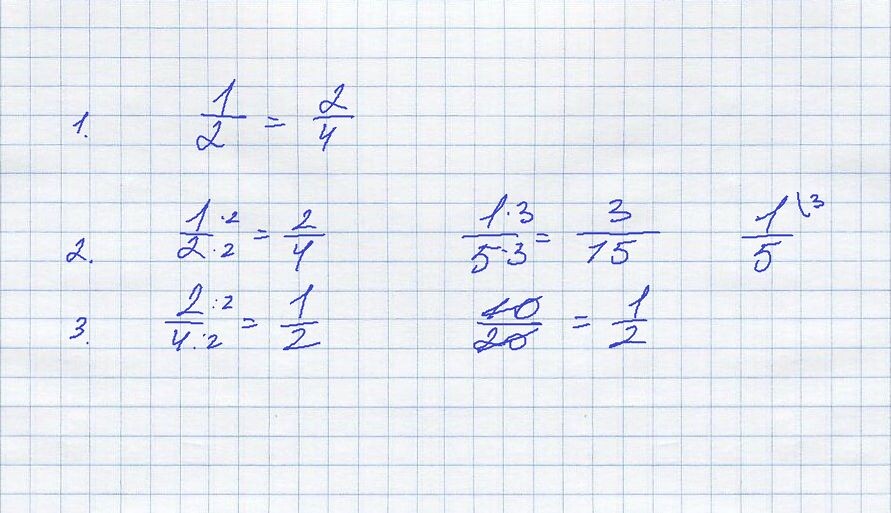 1. 1/2 = 2/4
2. 1·2/2·2 = 2/4 1·3/5·3 = 3/15 1\3/5
3. 2:2/4:2 = 1/2 10/20 = 1/2